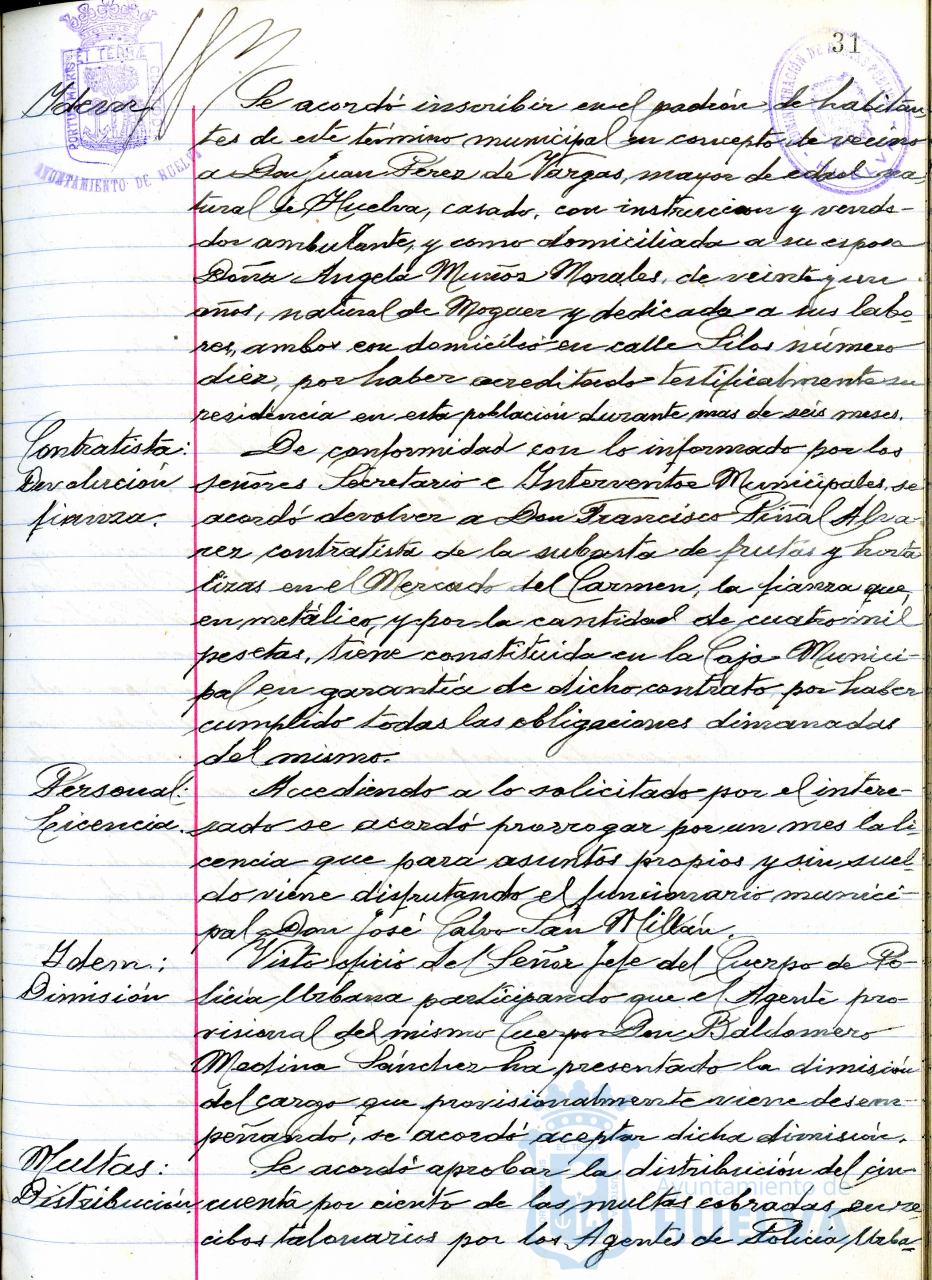 31
Idem
Se acordó inscribir en el padrón de habitan-
tes de este término municipal en concepto de vecino
a Don Juan Pérez de Vargas, mayor de edad na-
tural de Huelva, casado, con instruccion y vende-
dor ambulante, y como domiciliada a su esposa
Doña Angela Muñoz Morales, de veinte y un
años, natural de Moguer y dedicada a sus labo-
res, ambos con domicilio en calle Silos número
diez, por haber acreditado testificalmente su
residencia en esta población durante mas de seis meses.
Contratista:
Devolución
fianza.
De conformidad con lo informado por los
señores Secretario e Interventor Municipales, se
acordó devolver a Don Francisco Piñal Alva-
rez contratista de la subasta de frutas y horta
lizas en el Mercado del Carmen, la fianza que,
en metálico, y por la cantidad de cuatro mil
pesetas, tiene constituida en la Caja Munici-
pal en garantía de dicho contrato, por haber
cumplido todas las obligaciones dimanadas
del mismo.
Personal:
Licencia.
Accediendo a lo solicitado por el intere-
sado se acordó prorrogar por un mes la li-
cencia que para asuntos propios y sin suel-
do viene disfrutando el funcionario munici-
pal Don José Calvo San Millán.
Idem:
Dimisión
Visto oficio del Señor Jefe del Cuerpo de Po-
licía Urbana participando que el Agente pro-
visional del mismo Cuerpo Don Baldomero
Medina Sánchez ha presentado la dimisión
del cargo que provisionalmente viene desem-
peñando, se acordó aceptar dicha dimisión.
Multas:
Distribución.
Se acordó aprobar la distribución del cin-
cuenta por ciento de las multas cobradas en re-
cibos talonarios por los Agentes de Policía Urba-
PORTUS MARIS ET TERRAE CUSTODIA
AYUNTAMIENTO DE HUELVA
Ayuntamiento de
HUELVA